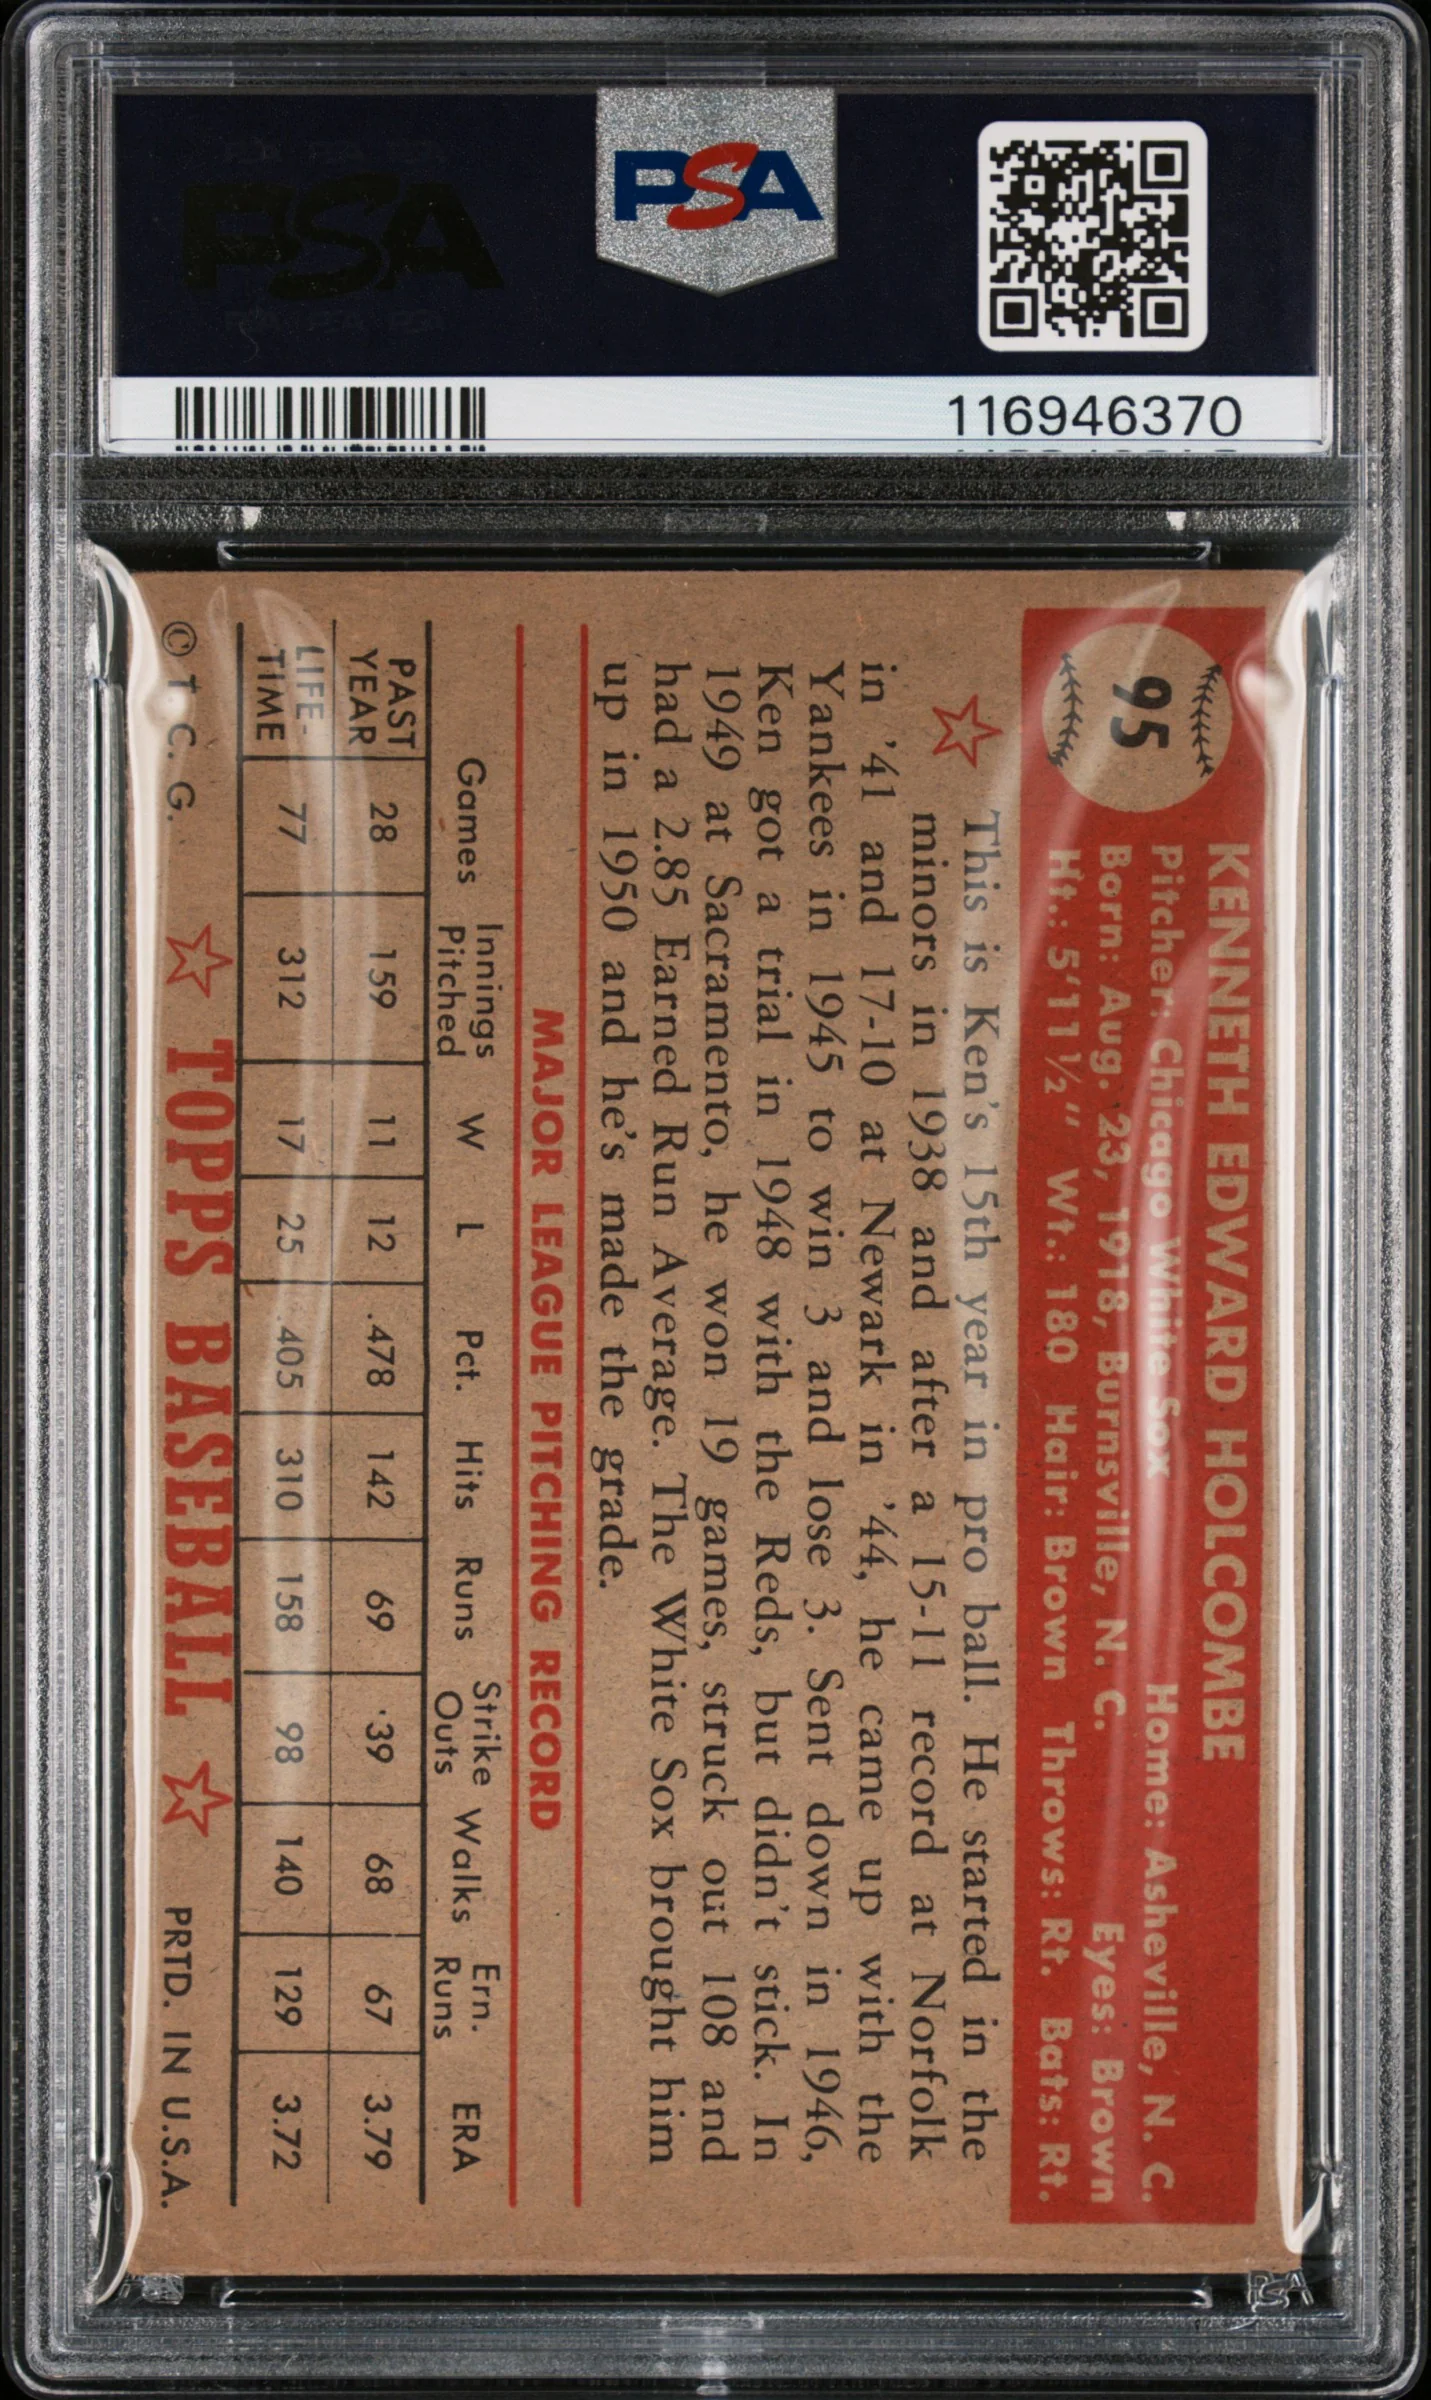 PSA
116946370
95
KENNETH EDWARD HOLCOMBE
Pitcher: Chicago White Sox Home: Asheville, N. C.
Born: Aug. 23, 1918, Burnsville, N. C. Eyes: Brown
Ht.: 5'11½" Wt.: 180 Hair: Brown Throws: Rt. Bats: Rt.
This is Ken's 15th year in pro ball. He started in the
minors in 1938 and after a 15-11 record at Norfolk
in '41 and 17-10 at Newark in '44, he came up with the
Yankees in 1945 to win 3 and lose 3. Sent down in 1946,
Ken got a trial in 1948 with the Reds, but didn't stick. In
1949 at Sacramento, he won 19 games, struck out 108 and
had a 2.85 Earned Run Average. The White Sox brought him
up in 1950 and he's made the grade.
MAJOR LEAGUE PITCHING RECORD
Games Innings Pitched W L Pct. Hits Runs Strike Outs Walks Ern. Runs ERA
PAST YEAR 28 159 11 12 .478 142 69 39 68 67 3.79
LIFE-TIME 77 312 17 25 .405 310 158 98 140 129 3.72
© T. C. G. ☆ TOPPS BASEBALL ☆ PRTD. IN U.S.A.
PSA